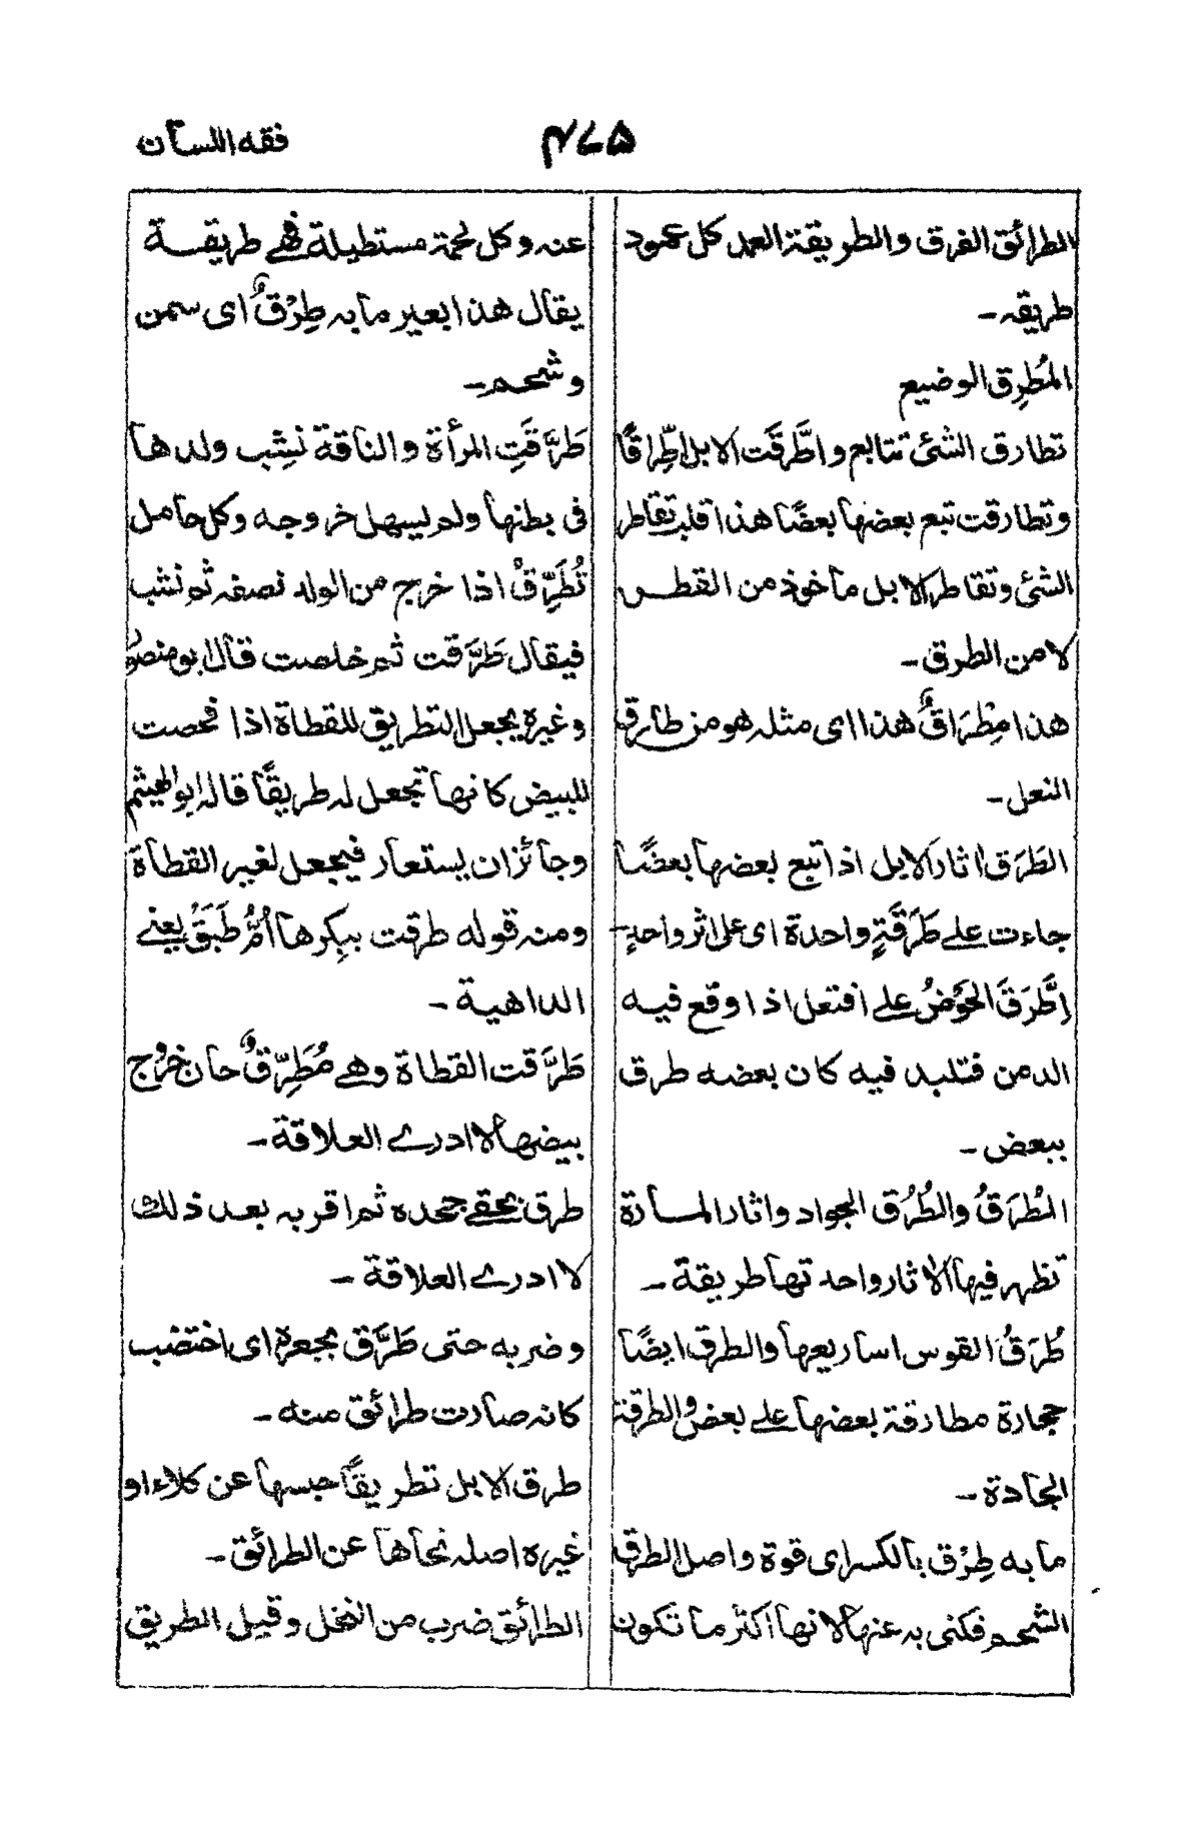 فقه اللسان
۴۷۵
الطرائق الفرق والطريقة العمد كل عمود
طريقه -
المُطرِق الوضيع
تطارق الشئ تتابع واطَّرقَت الابل اطِّراقًا
وتطارقت تبع بعضها بعضًا هذا قلب تقاطر
الشئ وتقاطر الابل ماخوذ من القطر
لا من الطرق -
هذا مِطْرَاقُ هذا اى مثله هو من طارق
النعل -
الطَرَق اثار الابل اذا تبع بعضها بعضًا
جاءت على طَرَقَةٍ واحدة اى على اثر واحدٍ -
اِطَّرَقَ الحَوْضُ على افتعل اذا وقع فيه
الدمن فتلبد فيه كان بعضه طرق
ببعض -
الطُرَقُ والطُرُق الجواد واثار المارة
تظهر فيها الاثار واحدتها طريقة -
طُرَقُ القوس اساريعها والطرق ايضًا
حجارة مطارقة بعضها على بعض والطرقة
الجادة -
ما به طِرْق بالكسر اى قوة واصل الطرق
الشحم فكنى به عنها لانها اكثر ما تكون
عنه وكل لحمة مستطيلة فهى طريقة
يقال هذا بعير ما به طِرْقٌ اى سمن
وشحم -
طَرَّقَتِ المرأة والناقة نشِب ولدها
فى بطنها ولم يسهل خروجه وكل حامل
تُطَرِّقُ اذا خرج من الولد نصفه ثم نشب
فيقال طَرَّقت ثم خلصت قال ابو منصور
وغيره يجعل التطريق للقطاة اذا فحصت
للبيض كانها تجعل له طريقًا قاله ابو الهيثم
وجائز ان يستعار فيجعل لغير القطاة
ومنه قوله طرقت ببِكرها اُمُّ طَبَقُ يعنى
الداهية -
طَرَّقت القطاة وهى مُطَرِّقٌ حان خروج
بيضها لا ادرى العلاقة -
طرق بحقى جحده ثم اقر به بعد ذلك
لا ادرى العلاقة -
وضربه حتى طَرَّق بجعره اى اختضب
كانه صارت طرائق منه -
طرق الابل تطريقًا حبسها عن كلاء او
غيره اصله نحاها عن الطرائق -
الطرائق ضرب من النخل وقيل الطريق